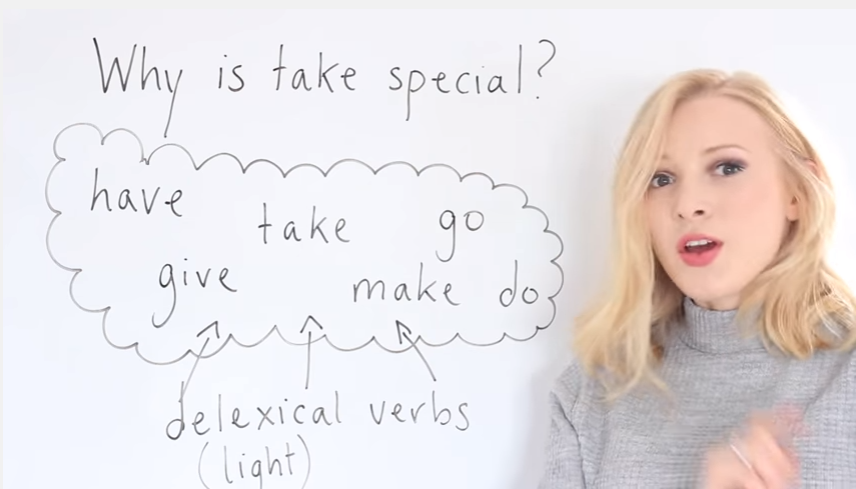 Why is take special?
have take go
give make do
delexical verbs
(light)